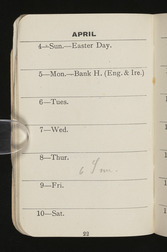 APRIL
4—Sun.—Easter Day.
5—Mon.—Bank H. (Eng. & Ire.)
6—Tues.
7—Wed.
8—Thur.
9—Fri.
10—Sat.
22